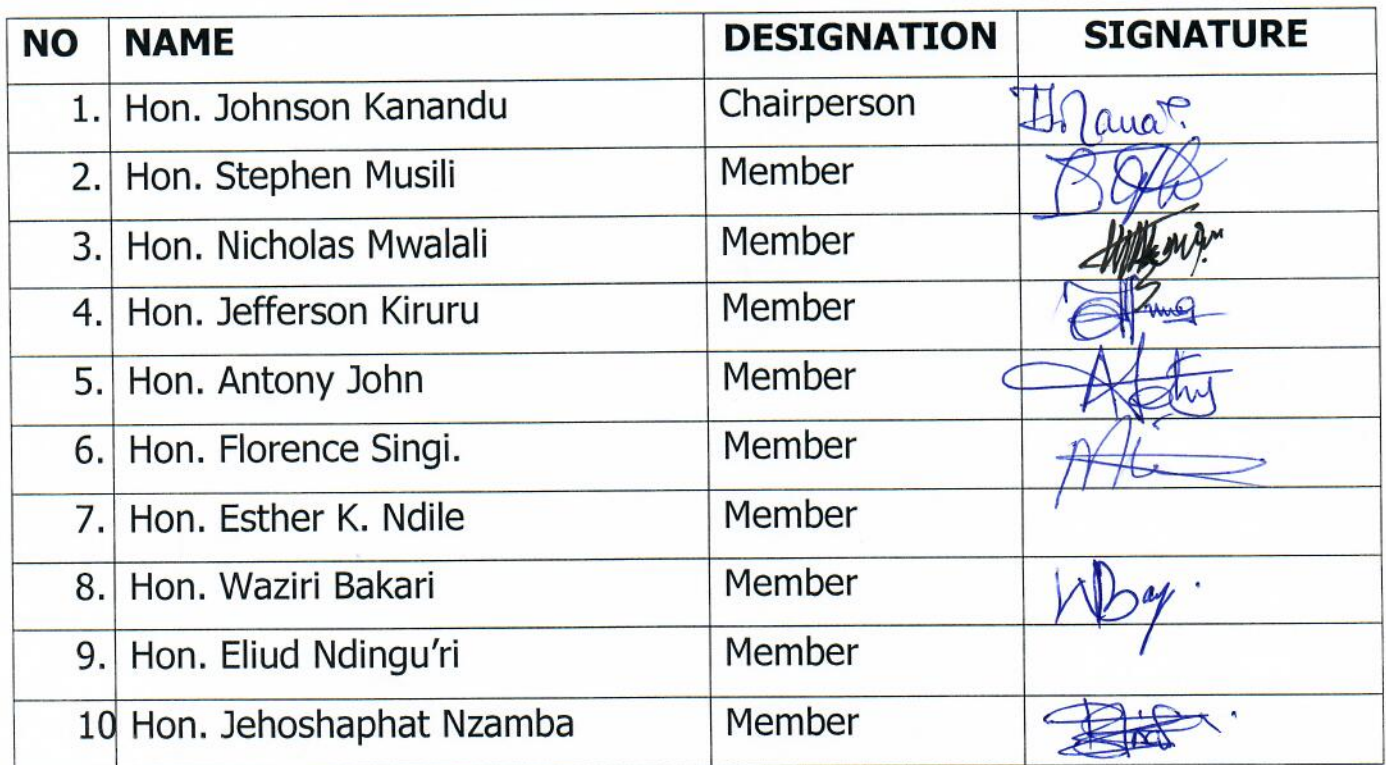 NO NAME DESIGNATION SIGNATURE
1. Hon. Johnson Kanandu Chairperson
2. Hon. Stephen Musili Member
3. Hon. Nicholas Mwalali Member
4. Hon. Jefferson Kiruru Member
5. Hon. Antony John Member
6. Hon. Florence Singi. Member
7. Hon. Esther K. Ndile Member
8. Hon. Waziri Bakari Member
9. Hon. Eliud Ndingu’ri Member
10 Hon. Jehoshaphat Nzamba Member